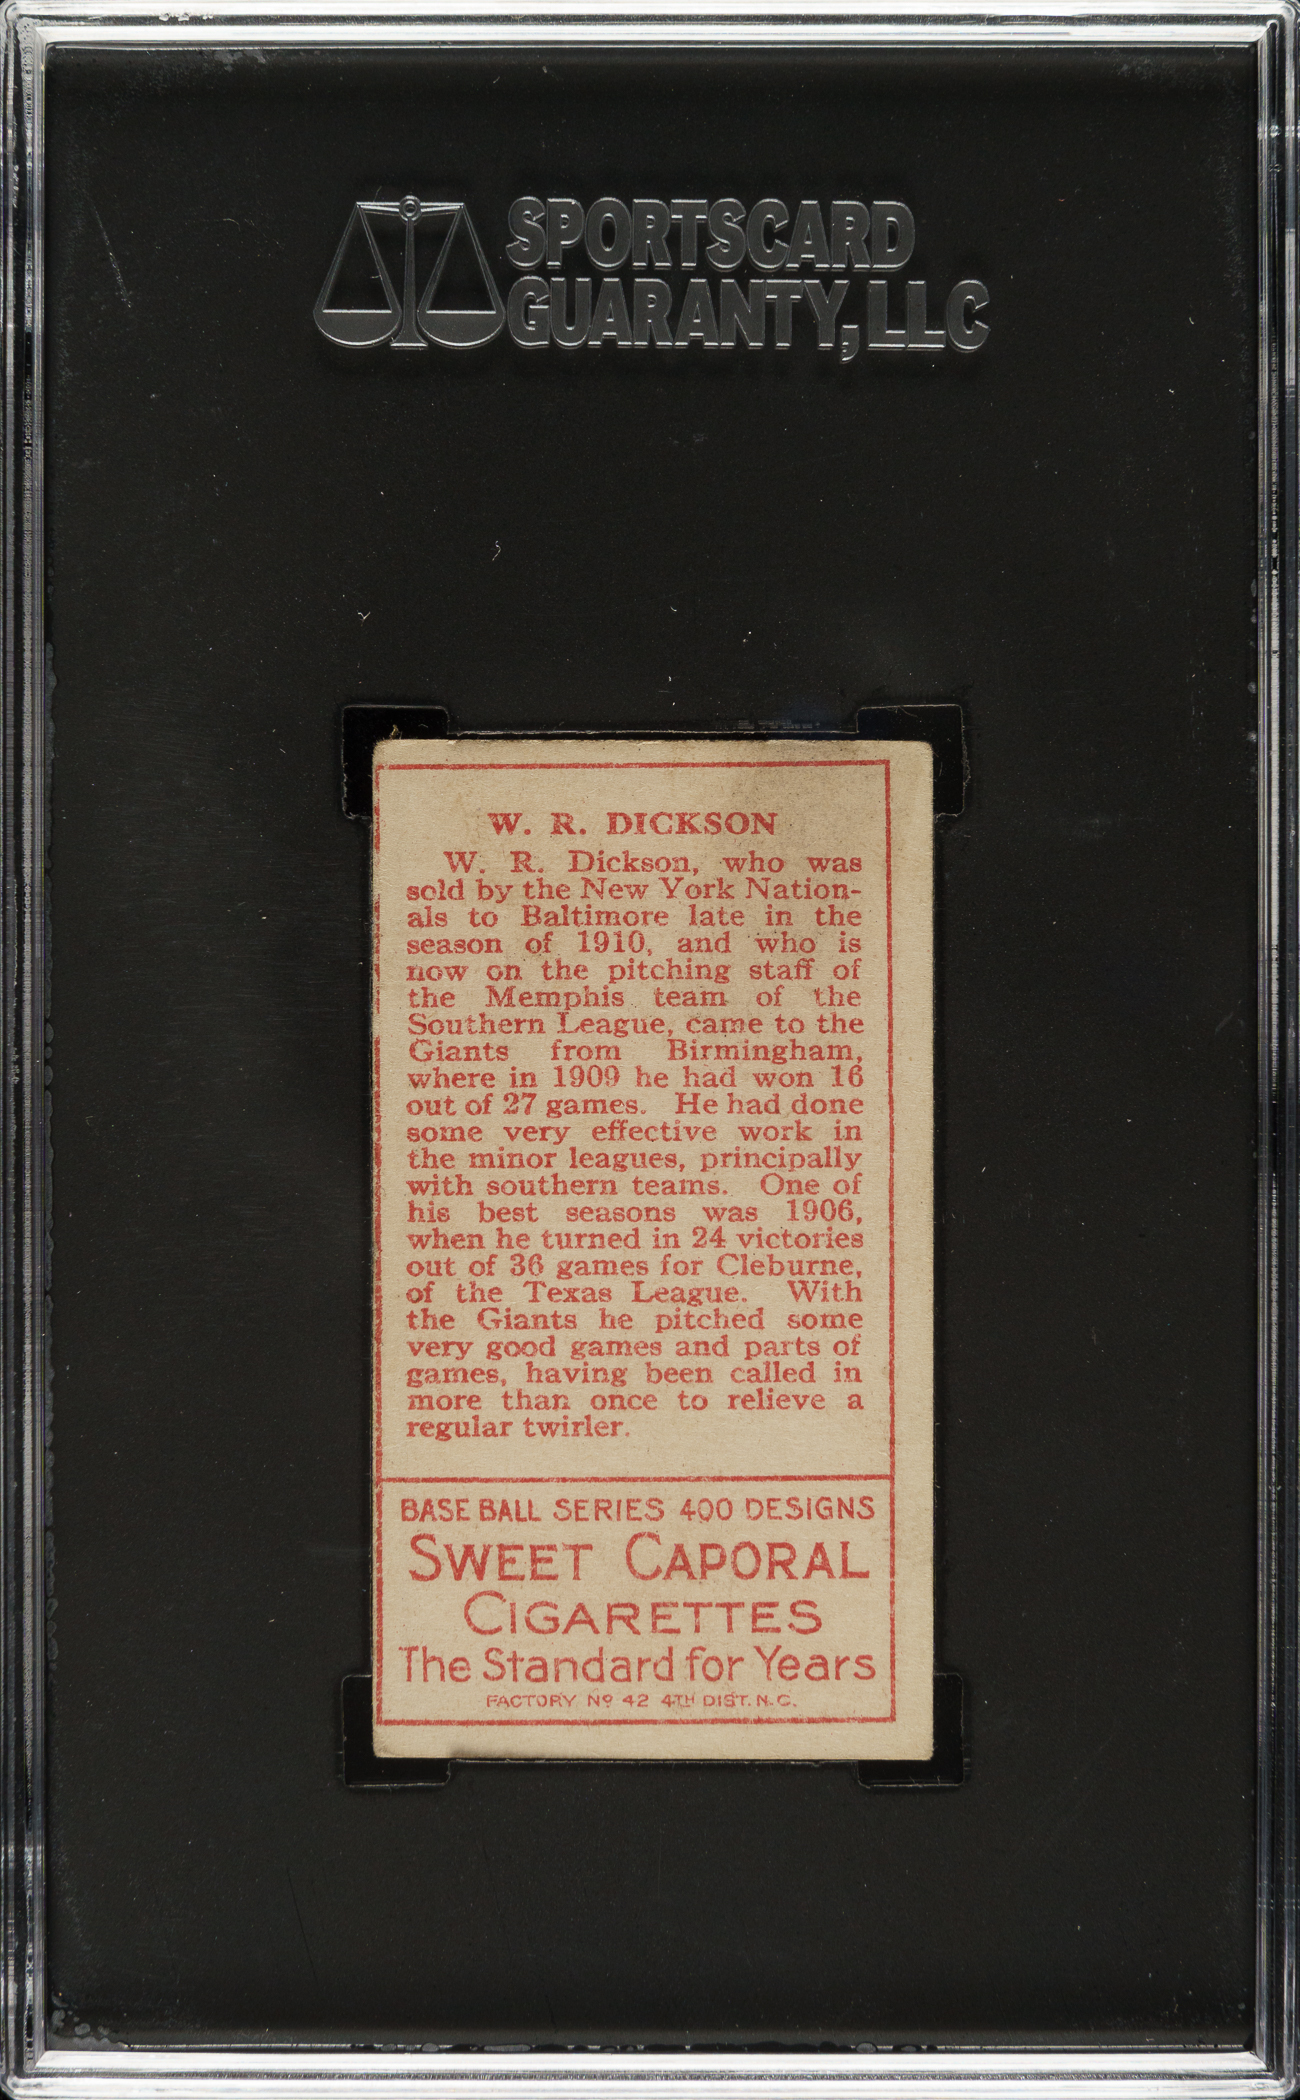 SPORTSCARD
GUARANTY, LLC
W. R. DICKSON
W. R. Dickson, who was
sold by the New York Nation-
als to Baltimore late in the
season of 1910, and who is
now on the pitching staff of
the Memphis team of the
Southern League, came to the
Giants from Birmingham,
where in 1909 he had won 16
out of 27 games. He had done
some very effective work in
the minor leagues, principally
with southern teams. One of
his best seasons was 1906,
when he turned in 24 victories
out of 36 games for Cleburne,
of the Texas League. With
the Giants he pitched some
very good games and parts of
games, having been called in
more than once to relieve a
regular twirler.
BASE BALL SERIES 400 DESIGNS
SWEET CAPORAL
CIGARETTES
The Standard for Years
FACTORY Nº 42 4TH DIST. N.C.